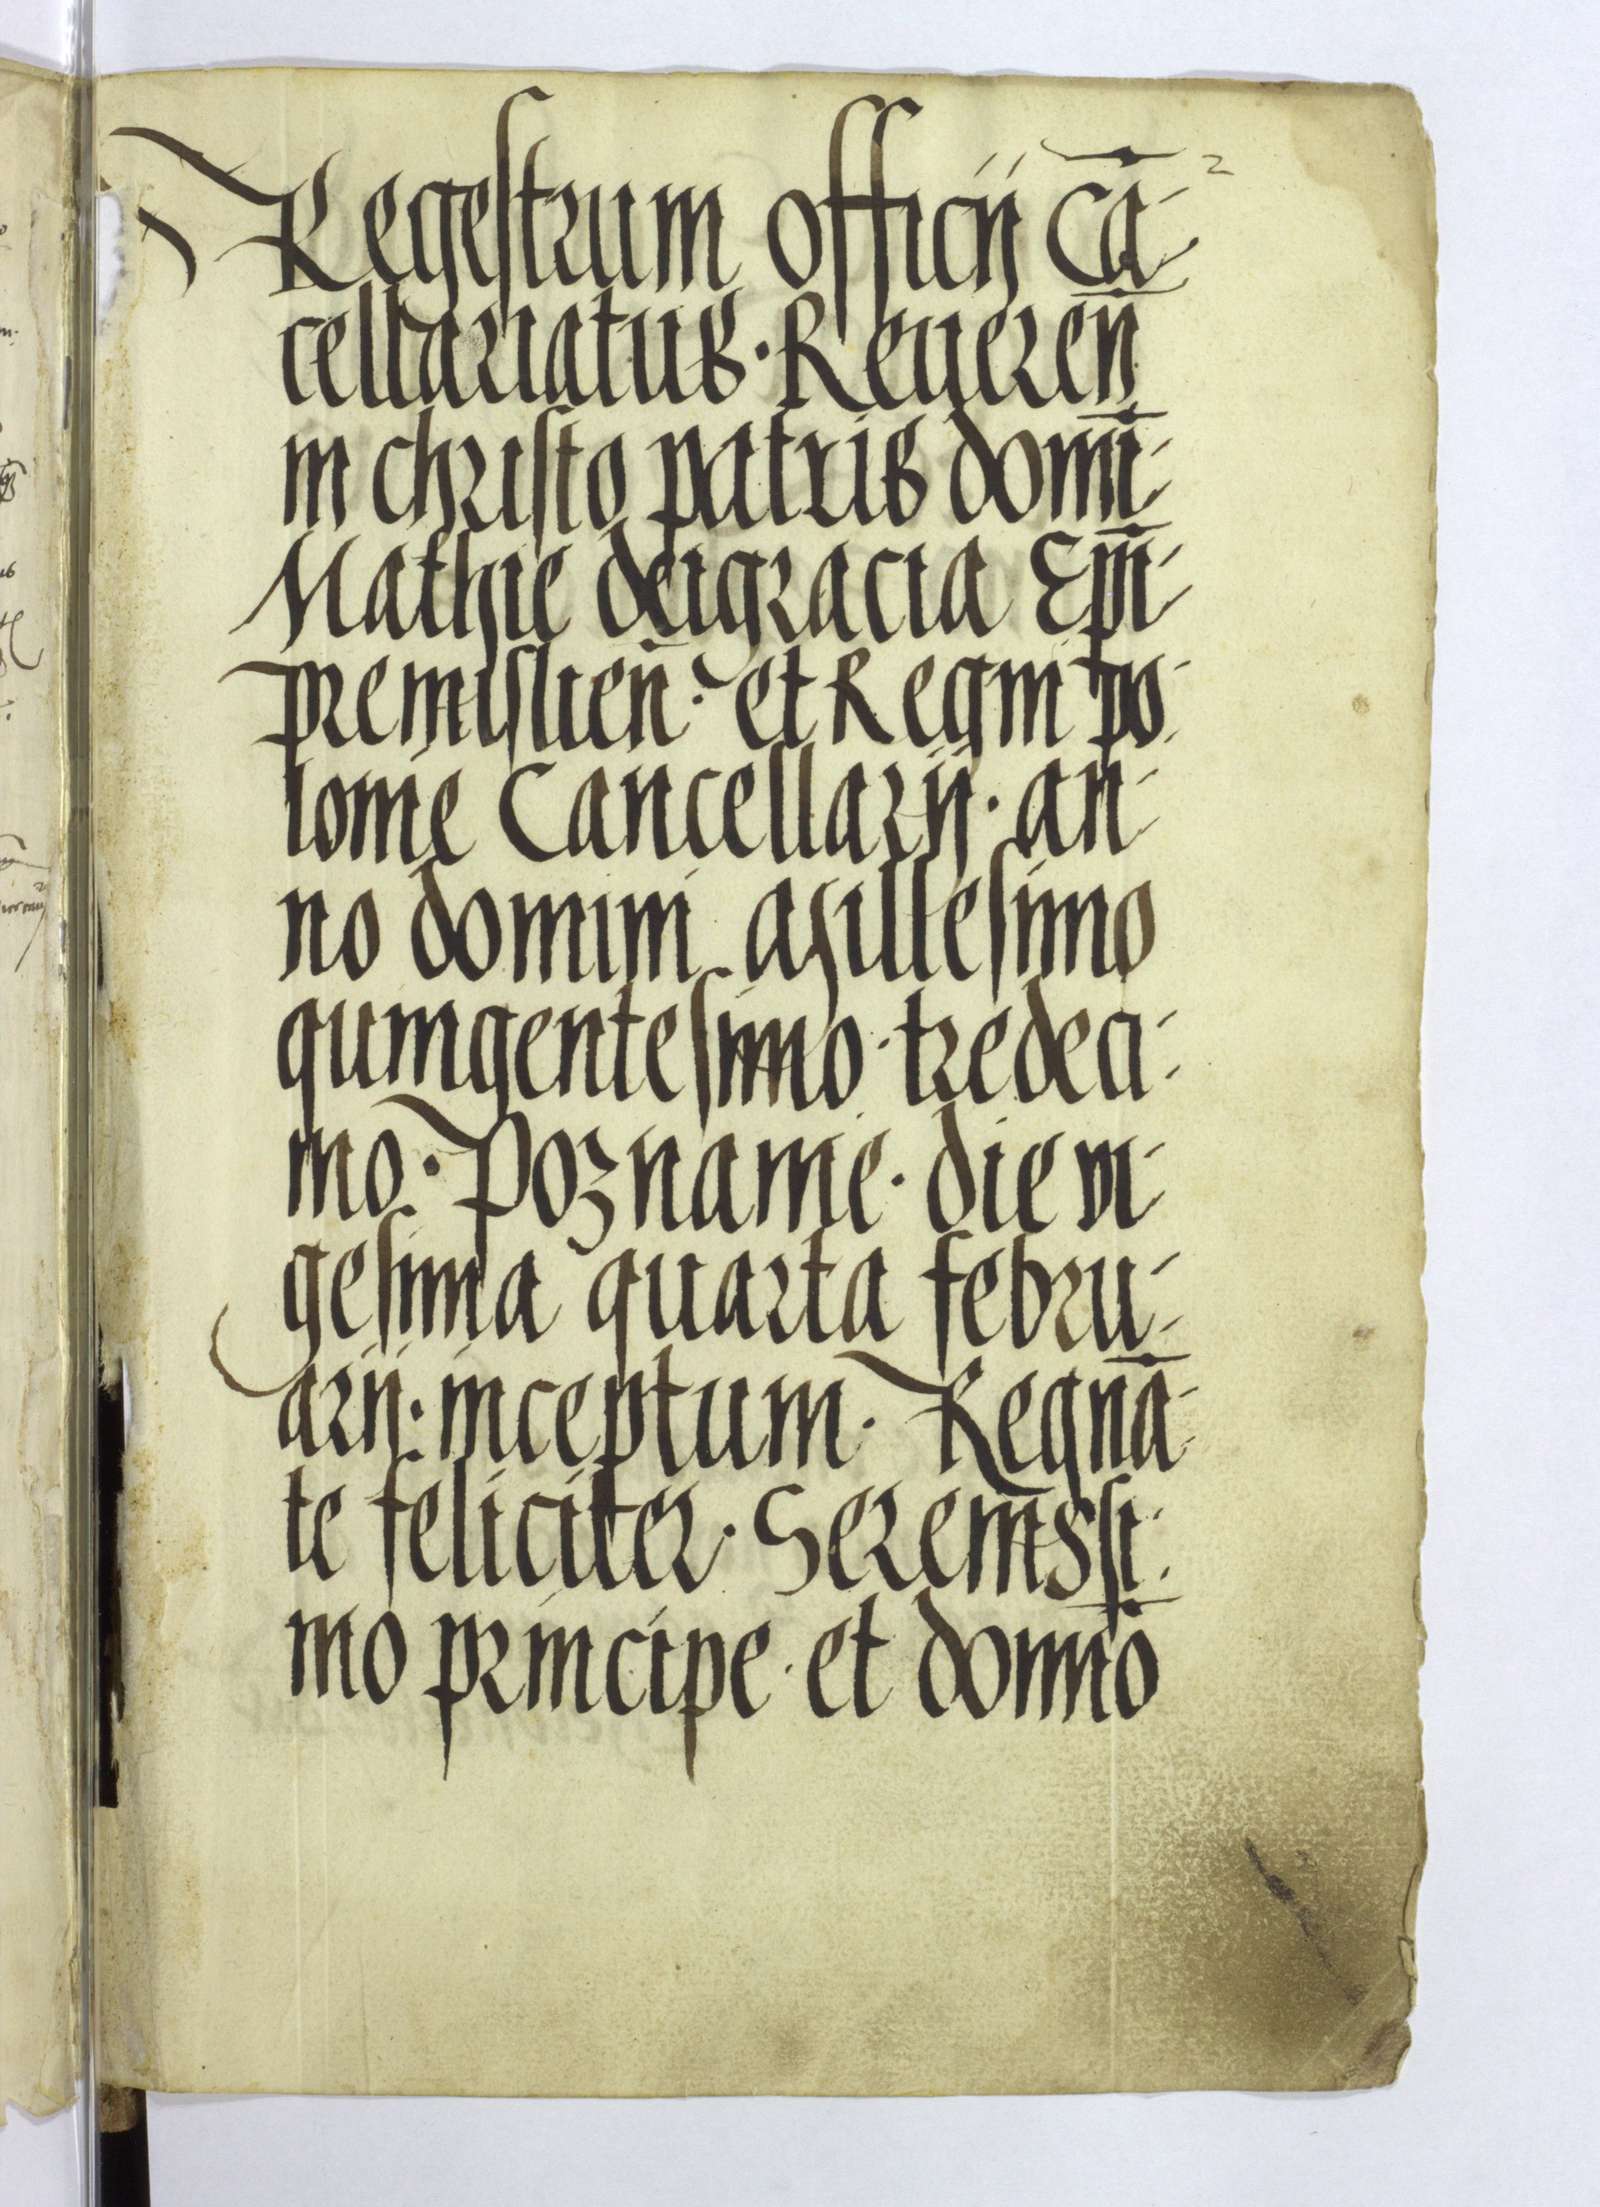 2
Regestrum officij Cā-
cellariatus · Reueren̄
in christo patris domī-
Mathie deigracia Ep̄i-
premislien̄ · et Regni po-
lonie Cancellarij · an-
no domini Millesimo
quingentesimo · tredeci-
mo · Poznanie · die vi-
gesima quarta febru-
arij · inceptum · Regnā-
te feliciter · Serenissi-
mo principe · et domīo